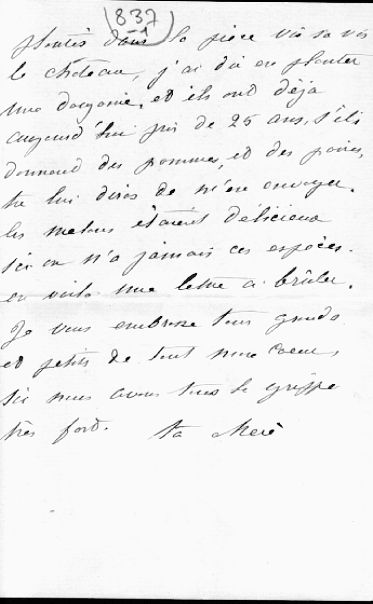 837
-1
plantés dans la pièce vis sa vis
le château, j'ai dû en planter
une douzaine, et ils ont déjà
aujourd'hui près de 25 ans, s'ils
donnend des pommes, et des poires,
tu lui diras de m'en envoyer.
les melons étaient délicieux
ici on n'a jamais ces espèces.
en voila une lettre a brûler.
Je vous embrasse tous grands
et petits de tout mon Coeur,
ici nous avons tous la grippe
très fort. ta Mère